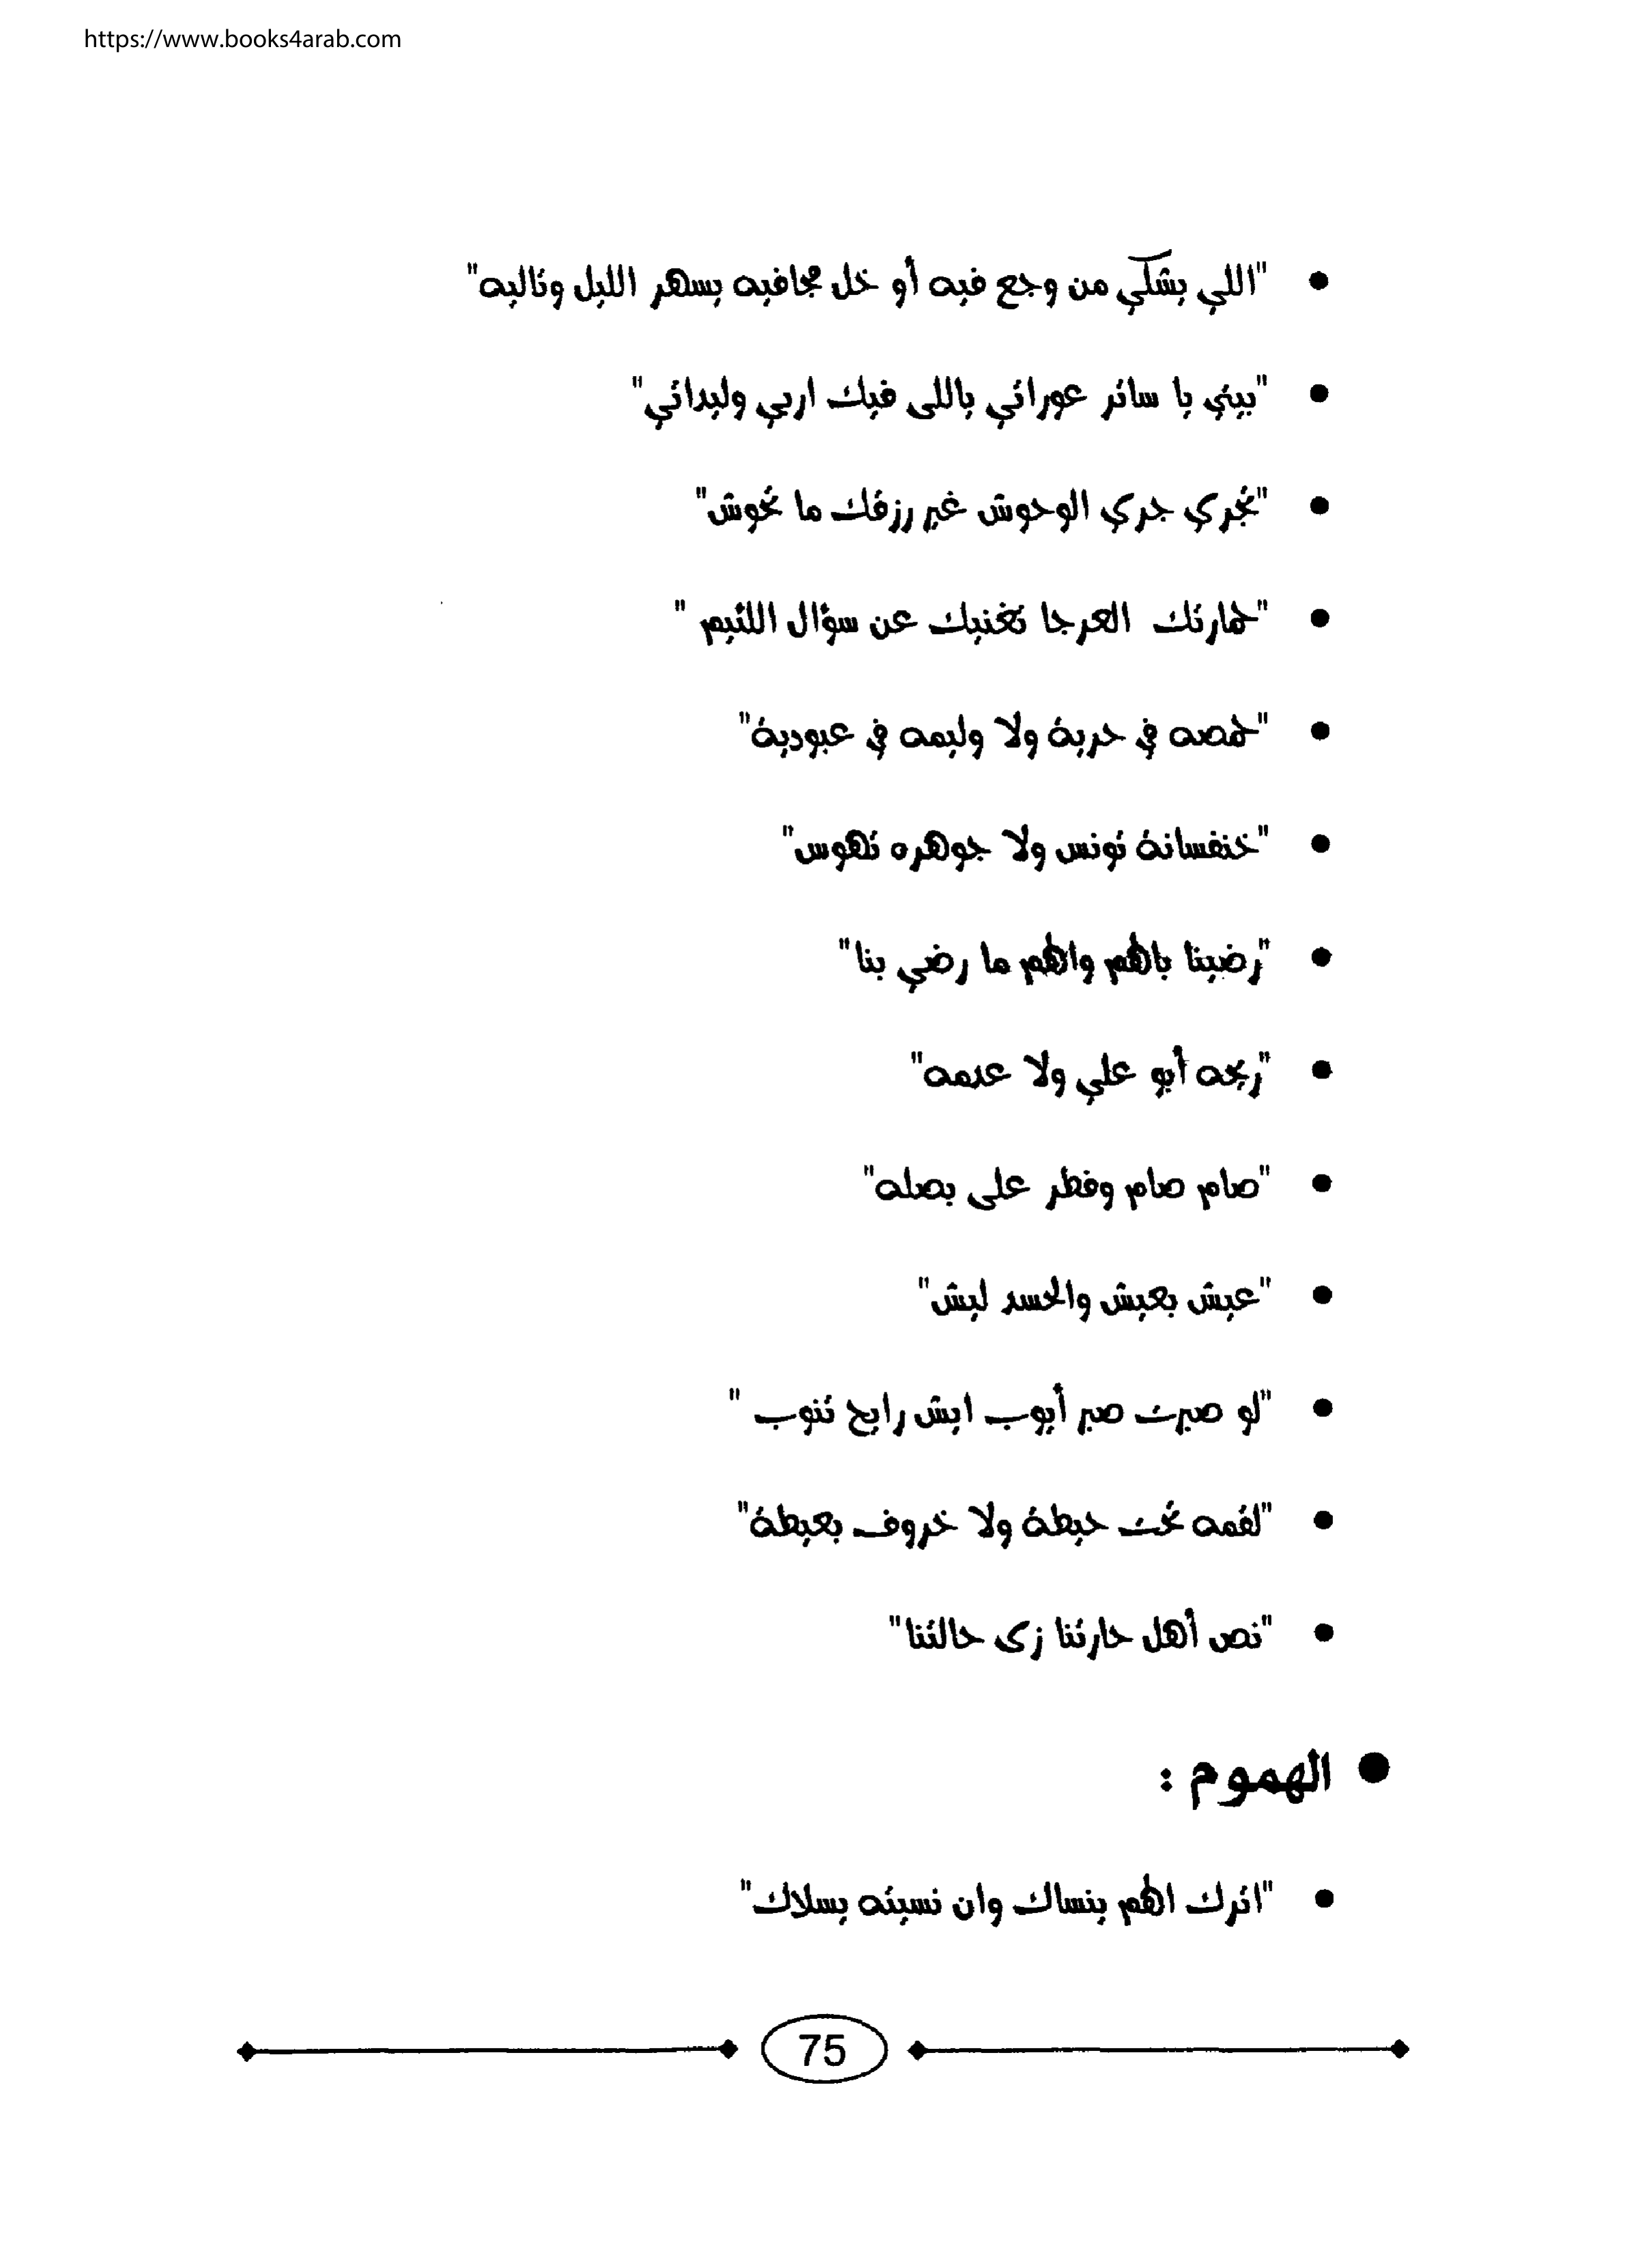 https://www.books4arab.com
• "اللي بشكي من وجع فيه أو خل مجافيه بسهر الليل وتاليه"
• "بيتي يا ساتر عوراتي ياللى فيك اربي وليداتي"
• "تجري جري الوحوش غير رزقك ما تحوش"
• "حمارتك العرجا تغنيك عن سؤال اللئيم "
• "حمصه في حرية ولا وليمه في عبودية"
• "خنفسانة تونس ولا جوهره تهوس"
• "رضينا بالهم والهم ما رضي بنا"
• "ريحه أبو علي ولا عدمه"
• "صام صام وفطر على بصله"
• "عيش بعيش والحسد ليش"
• "لو صبرت صبر أيوب ايش رايح تنوب "
• "لقمه تحت حيطة ولا خروف بعيطة"
• "نص أهل حارتنا زى حالتنا"
• الهموم :
• "اترك الهم ينساك وان نسيته بسلاك"
75